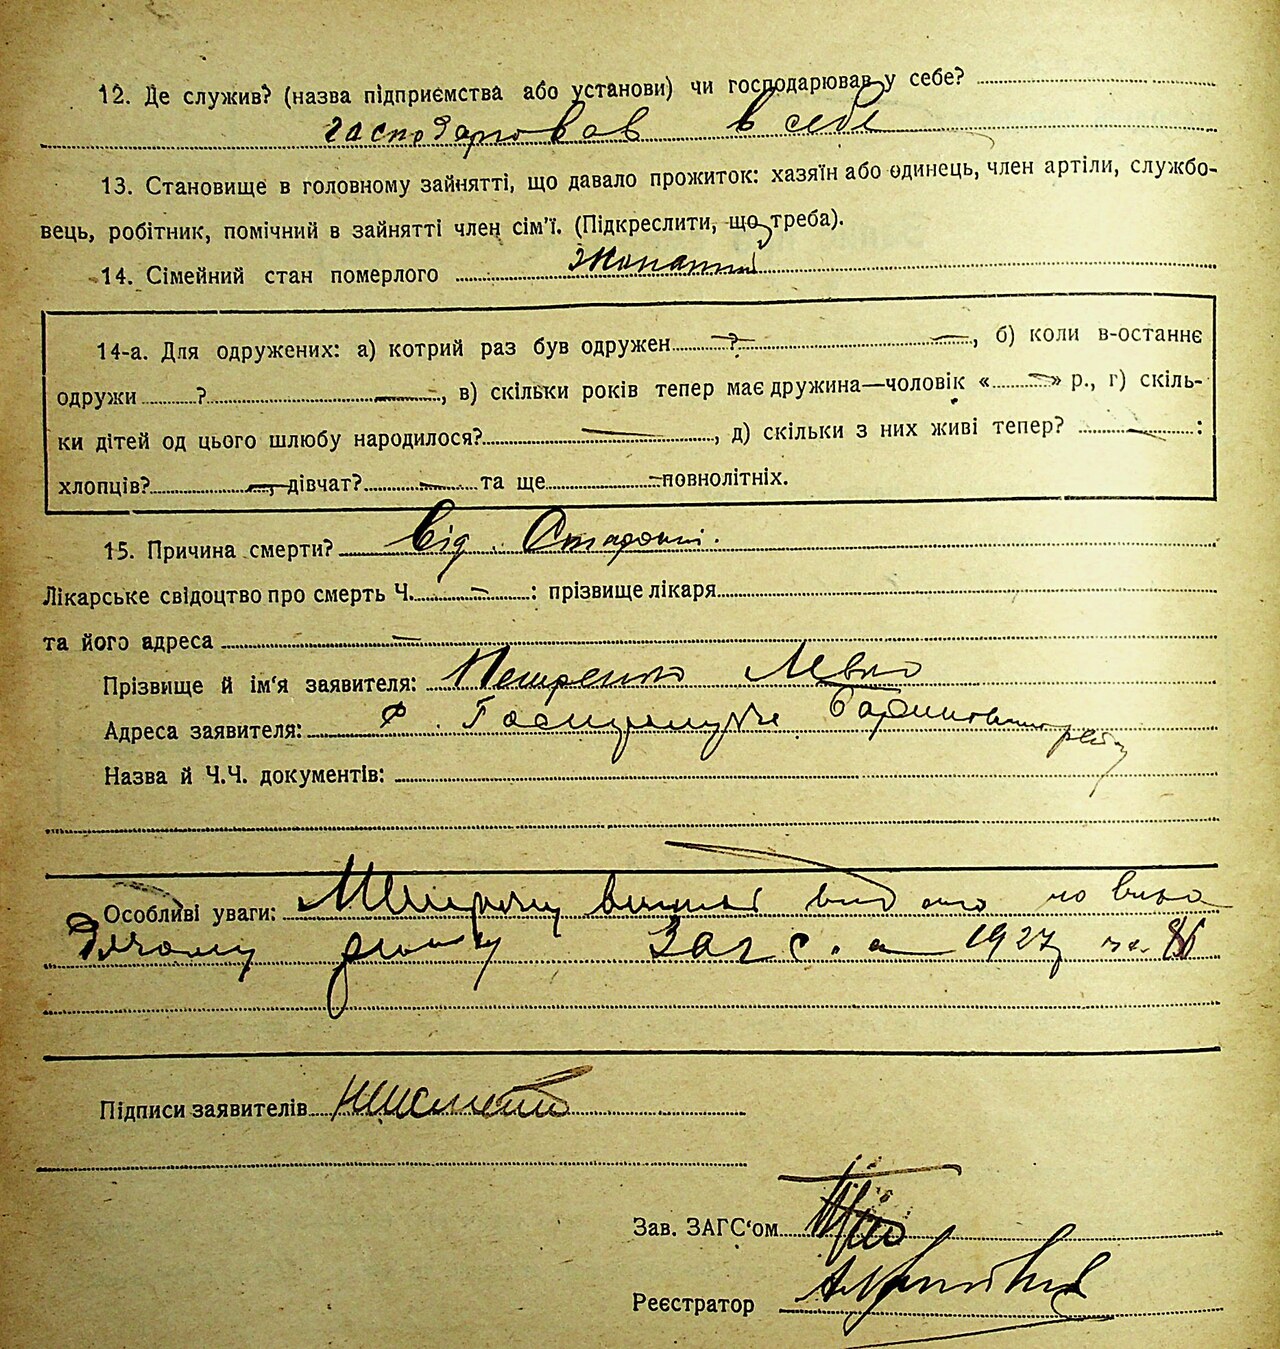 12. Де служив? (назва підприємства або установи) чи господарював у себе?
гасподарював в себе
13. Становище в головному зайнятті, що давало прожиток: хазяїн або одинець, член артіли, службо-
вець, робітник, помічний в зайнятті член сім'ї. (Підкреслити, що треба).
14. Сімейний стан померлого жонатий
14-а. Для одружених: а) котрий раз був одружен ?, б) коли в-останнє
одружи ?, в) скільки років тепер має дружина—чоловік « — » р., г) скіль-
ки дітей од цього шлюбу народилося? —, д) скільки з них живі тепер? — :
хлопців? —, дівчат? — та ще — повнолітніх.
15. Причина смерти? Від Старости.
Лікарське свідоцтво про смерть Ч. — : прізвище лікаря
та його адреса —
Прізвище й ім'я заявителя: Петренко Левко
Адреса заявителя:
Назва й Ч.Ч. документів:
Особливі уваги: Метрику
ЗАГС.а 1927
Підписи заявителів
Зав. ЗАГС'ом
Реєстратор